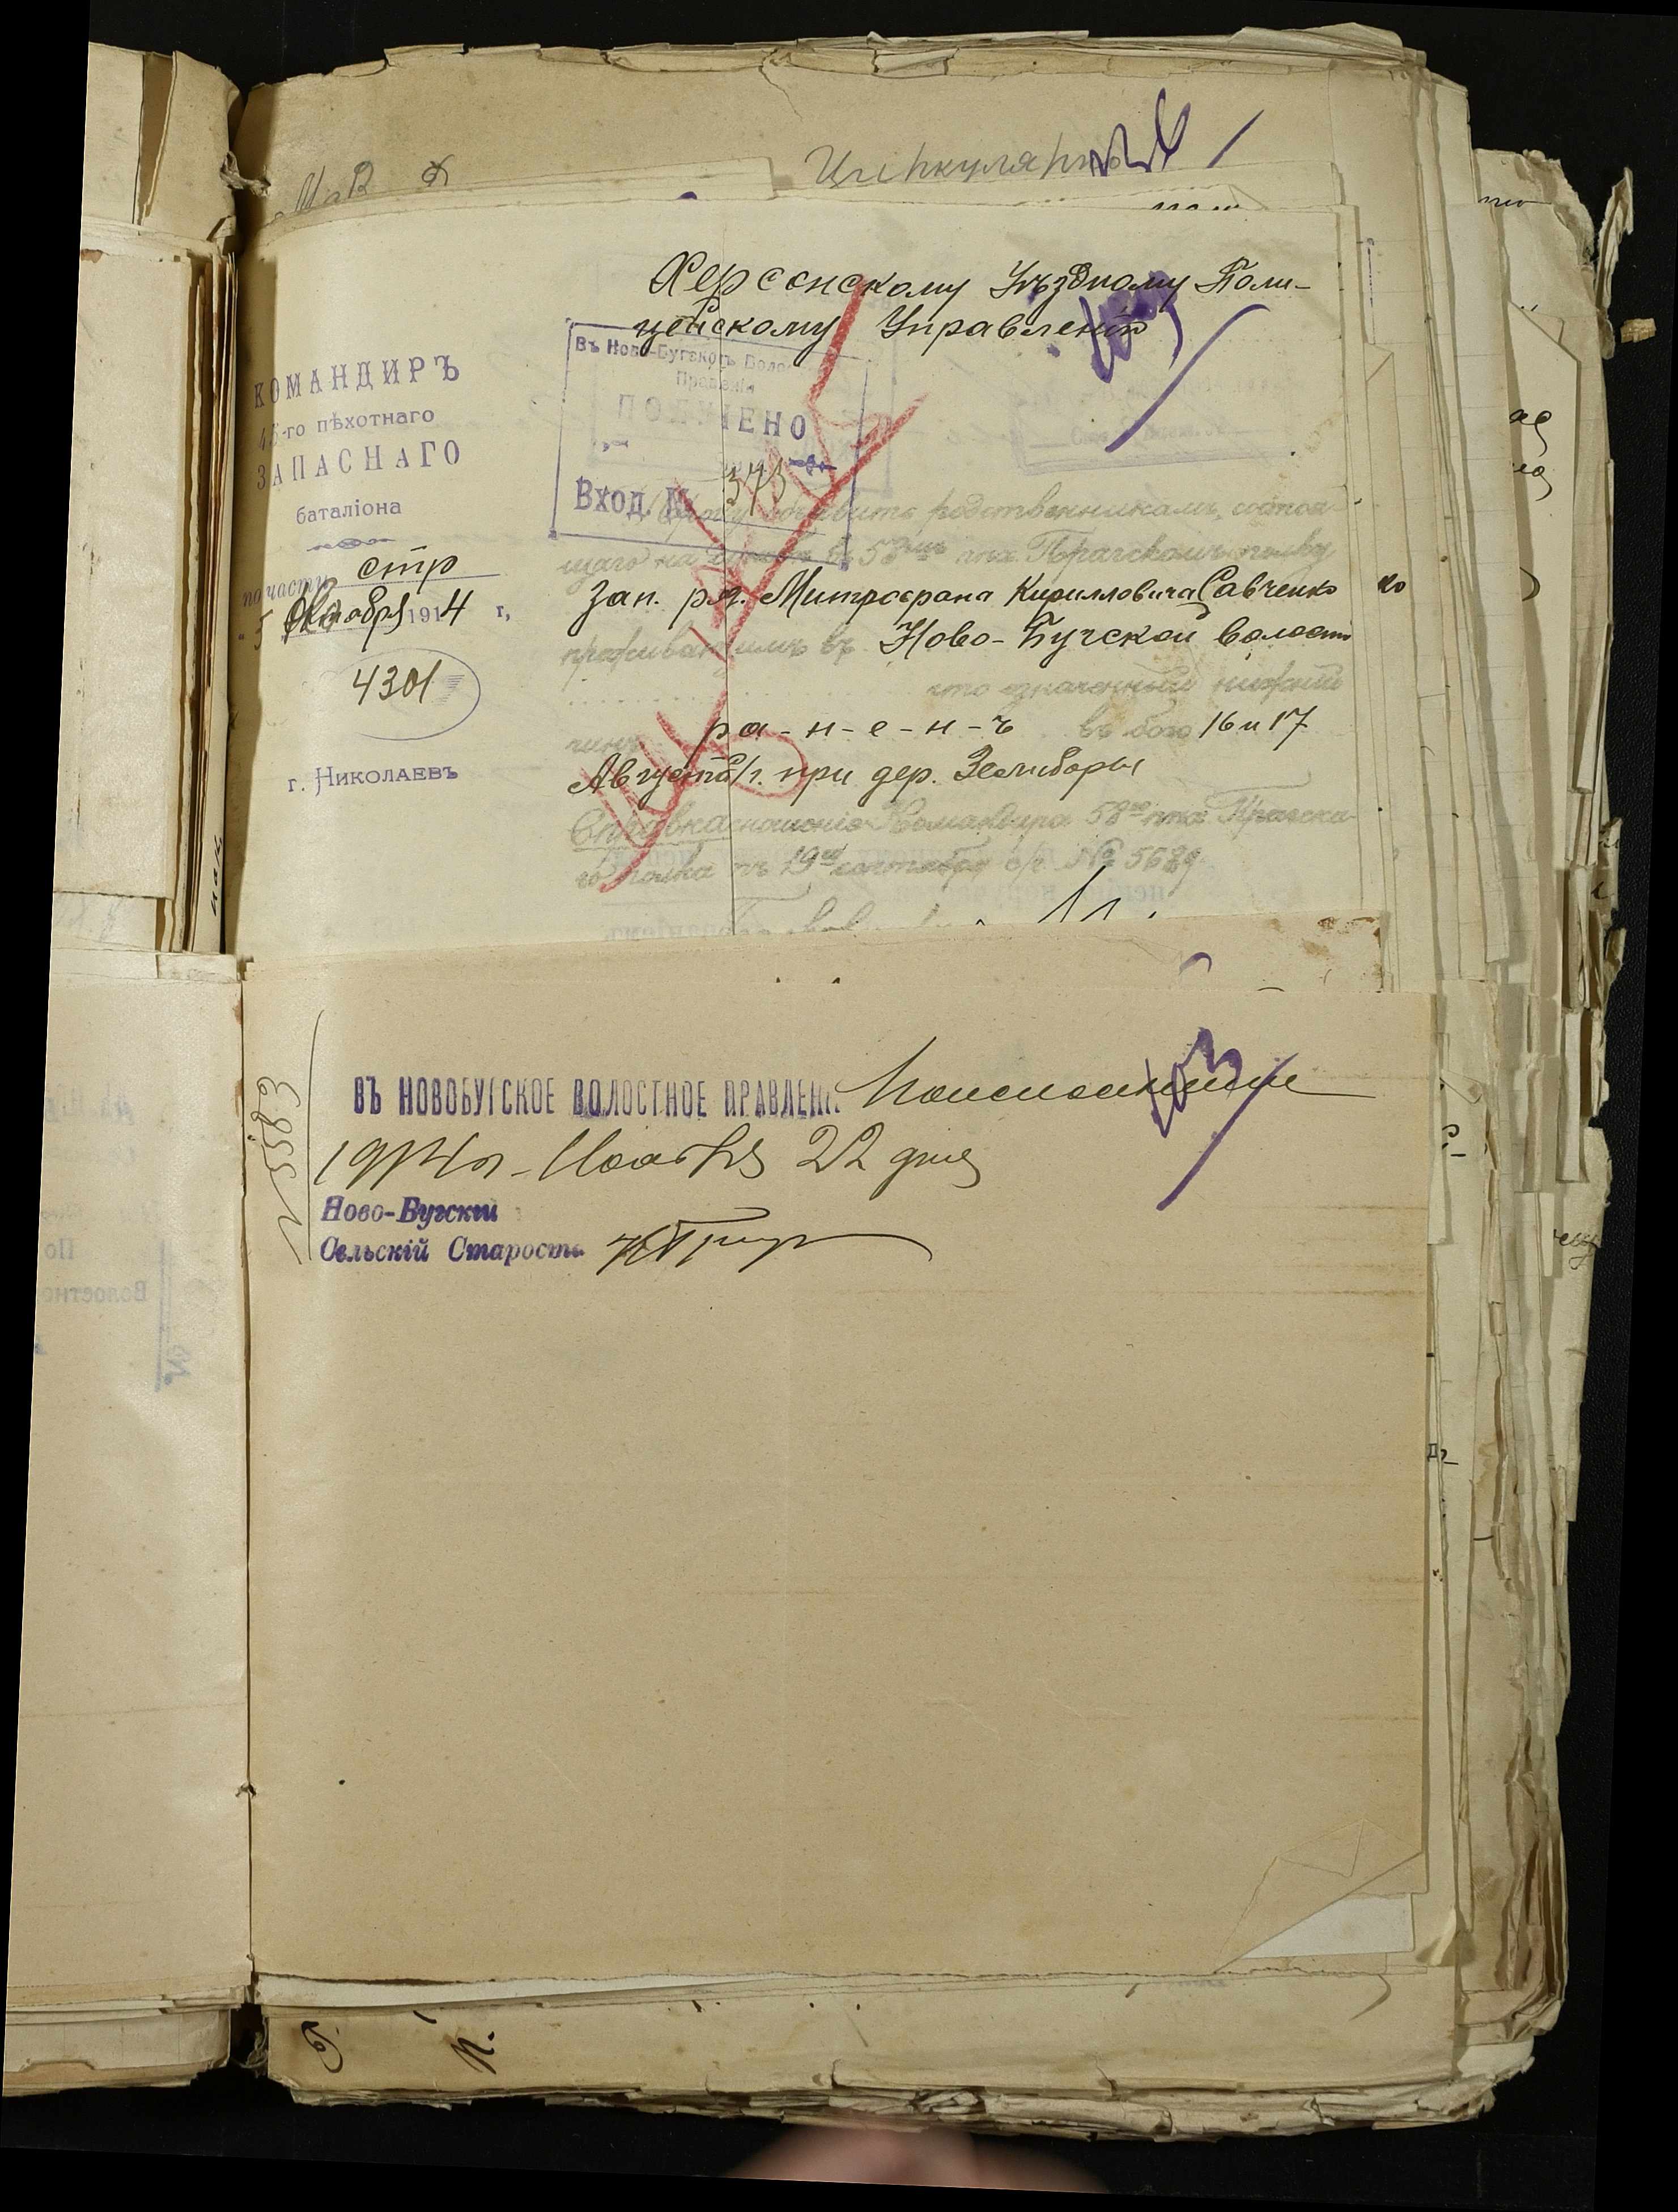 Циркулярно
Херсонскому Уѣздному Поли-
цейскому Управленію
КОМАНДИРЪ
45-го пѣхотнаго
ЗАПАСНАГО
баталіона
по части стр
5 Октября 1914 г,
4301
г. Николаевъ
Въ Ново-Бугскомъ Воло
Правленіи
ПОЛУЧЕНО
Вход. № 373
Прошу объявить родственникамъ, состоя-
щаго на службѣ въ 58мъ пѣх. Прагскомъ полку
Зап. ряд. Митрофана Кирилловича Савченко
проживающимъ въ Ново-Бугской волости
что означенный нижній
чинъ р а - н - е - н - ъ въ бою 16 и 17
Августа с/г. при дер. Зелиборы
Справка: отношеніе Командира 58го пѣх. Прагска-
го полка отъ 19го сентября с/г. № 5639
103
ВЪ НОВОБУГСКОЕ ВОЛОСТНОЕ ПРАВЛЕНІ
1914 г. Ноября 22 дня
Ново-Бугскій
Сельскій Староста
№ 5583